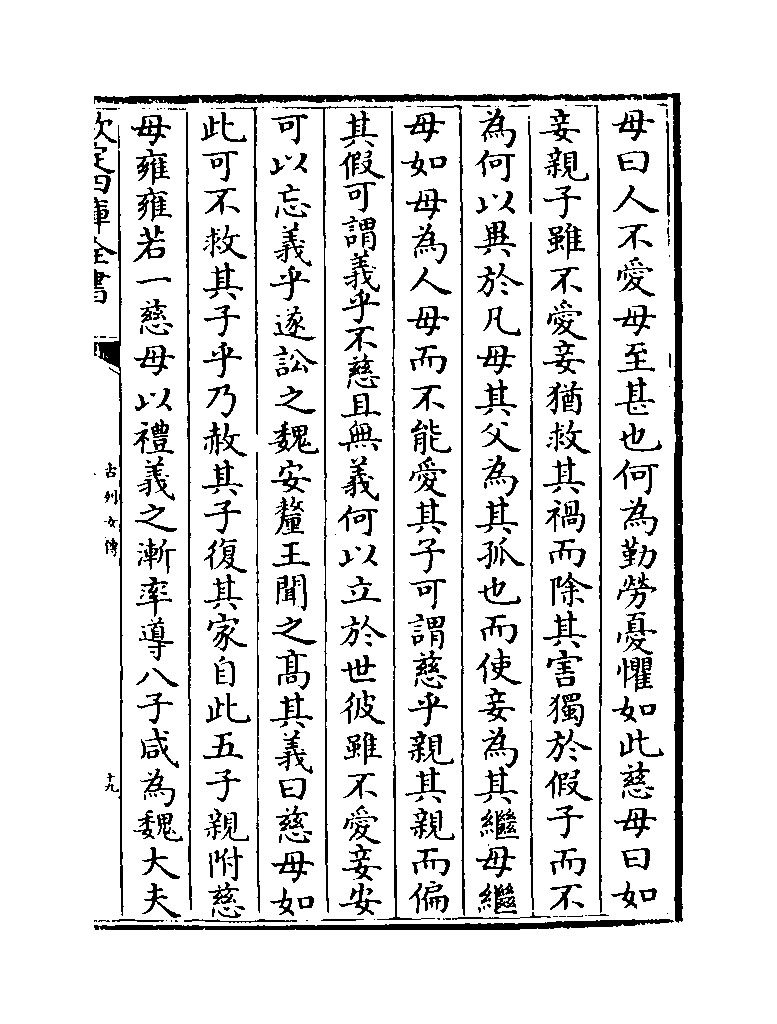 母曰人不愛母至甚也何為勤勞憂懼如此慈母曰如
妾親子雖不愛妾猶救其禍而除其害獨於假子而不
為何以異於凡母其父為其孤也而使妾為其繼母繼
母如母為人母而不能愛其子可謂慈乎親其親而偏
其假可謂義乎不慈且無義何以立於世彼雖不愛妾安
可以忘義乎遂訟之魏安釐王聞之髙其義曰慈母如
此可不救其子乎乃赦其子復其家自此五子親附慈
母雍雍若一慈母以禮義之漸率導八子咸為魏大夫
欽定四庫全書
古列女傳
十九